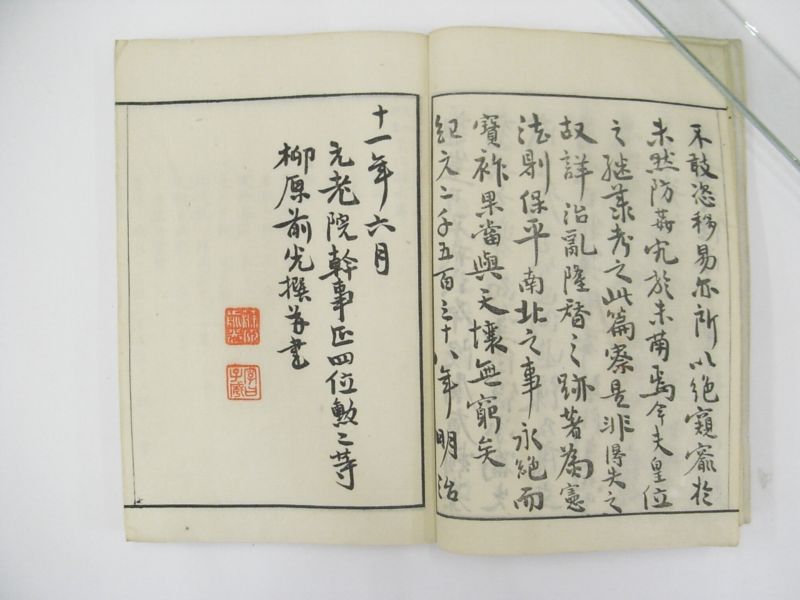 不敢恣移易亦所以絶窺窬於
未然防姦宄於未萌焉今夫皇位
之継業考之此篇察是非得失之
故詳治亂隆替之跡著為憲
法則保平南北之事永絶而
寶祚果當與天壤無窮矣
紀元二千五百三十八年明治
十一年六月
元老院幹事正四位勲二等
柳原前光撰并書